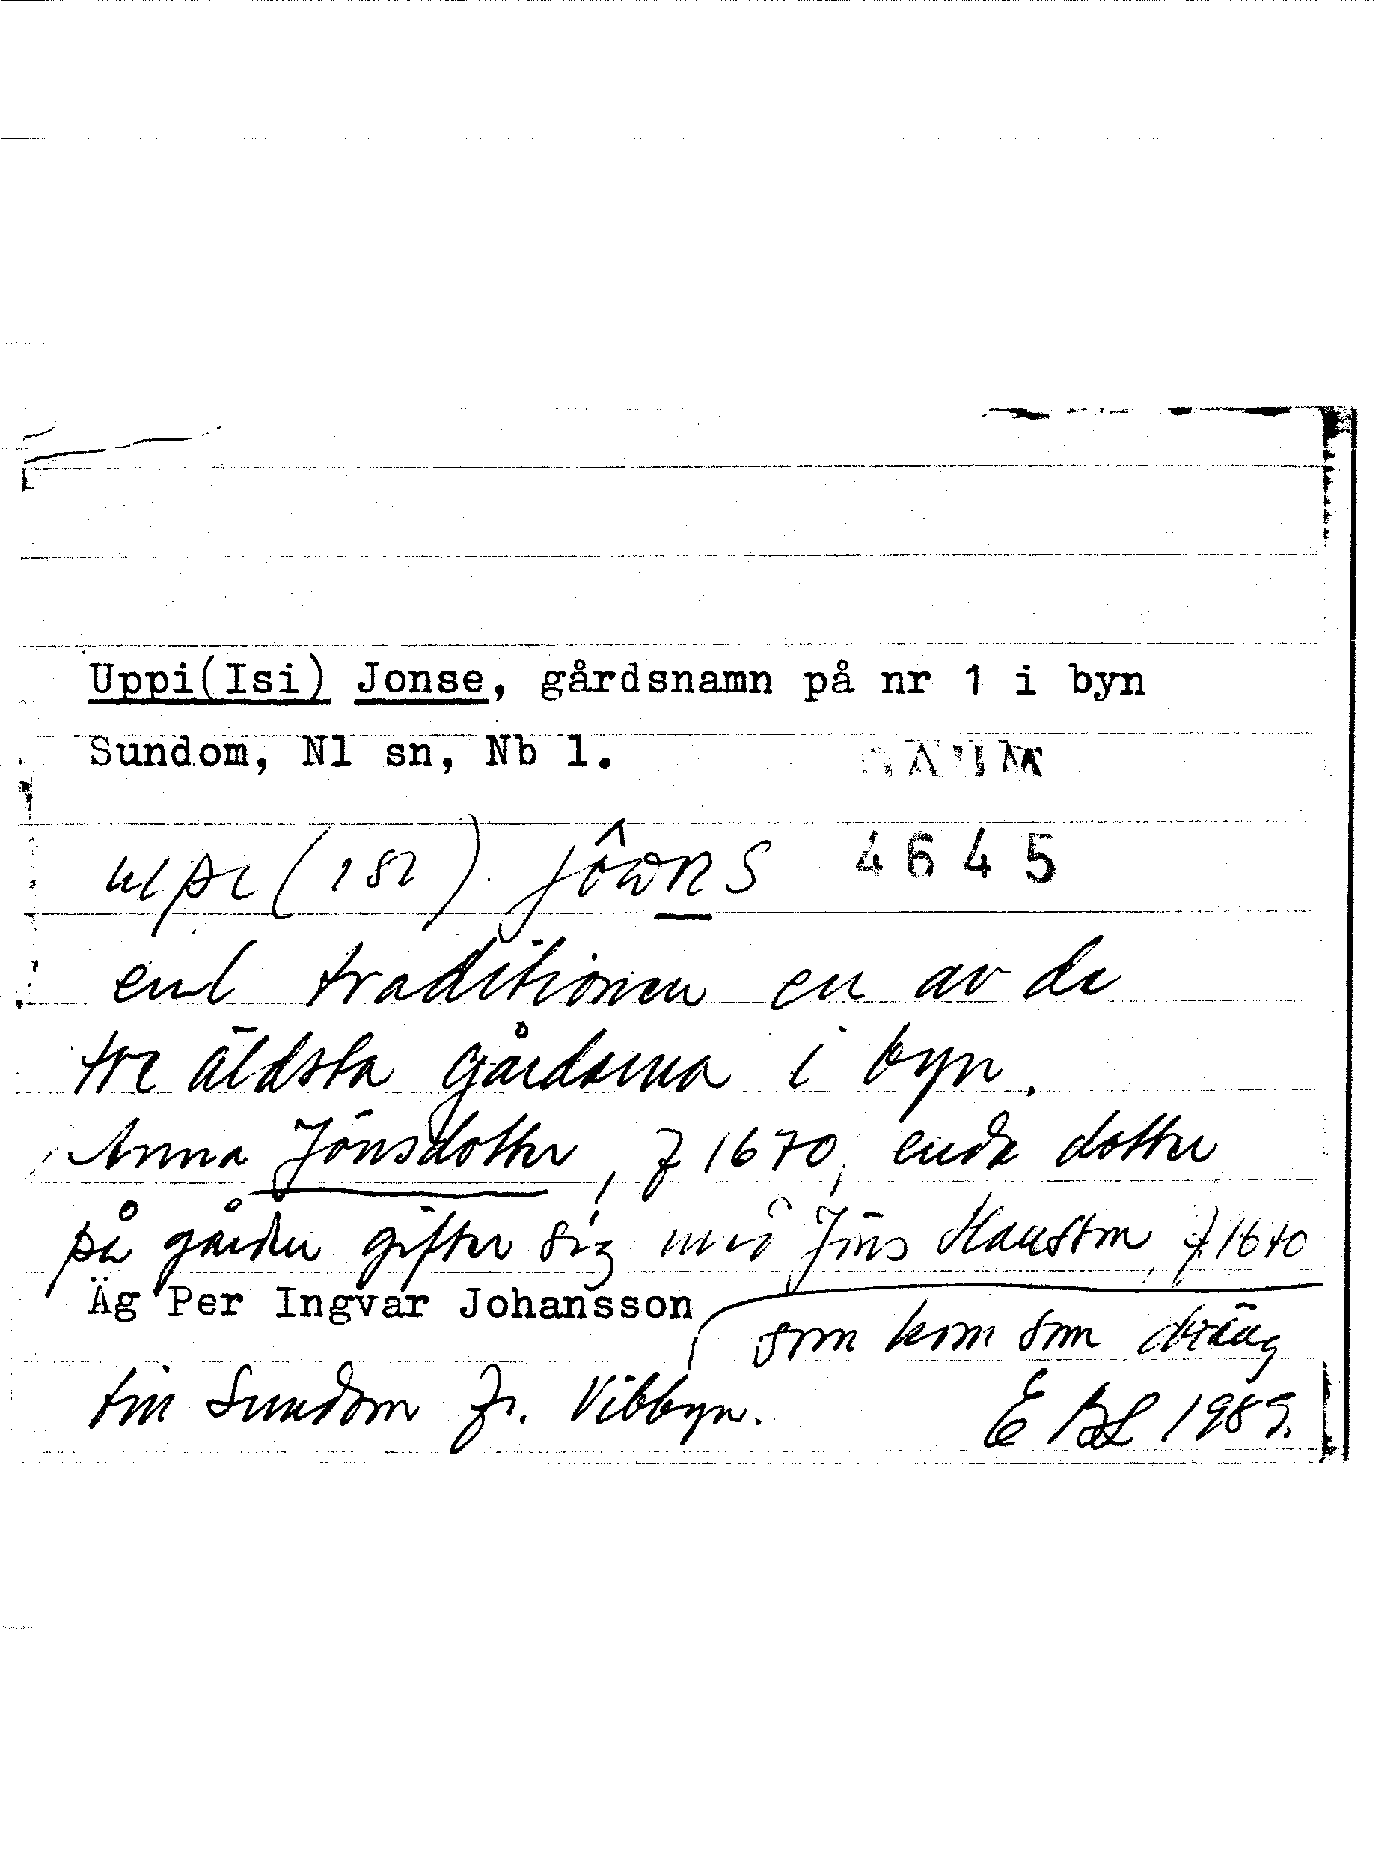 Uppi(Isi) Jonse, gårdsnamn på nr 1 i byn
Sundom, Nl sn, Nb l.
4645
enl traditionen en av de
tre äldsta gårdarna i byn.
Anna Jönsdotter, f 1670, enda dotter
på gården gifter sig med Jöns Hansson, f 1640
Äg Per Ingvar Johansson
som kom som dräng
till Sundom fr. Vibbyn.
E BL 1989.